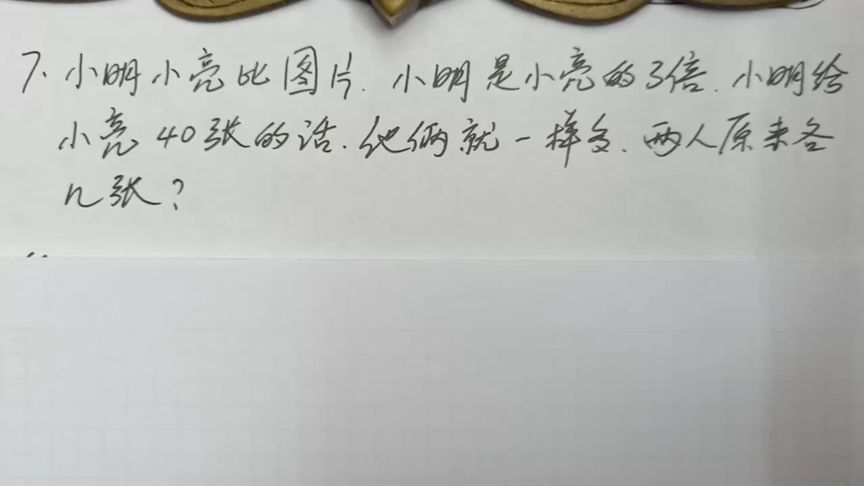 7. 小明小亮比图片. 小明是小亮的3倍. 小明给
小亮40张的话. 他俩就一样多. 两人原来各
几张?